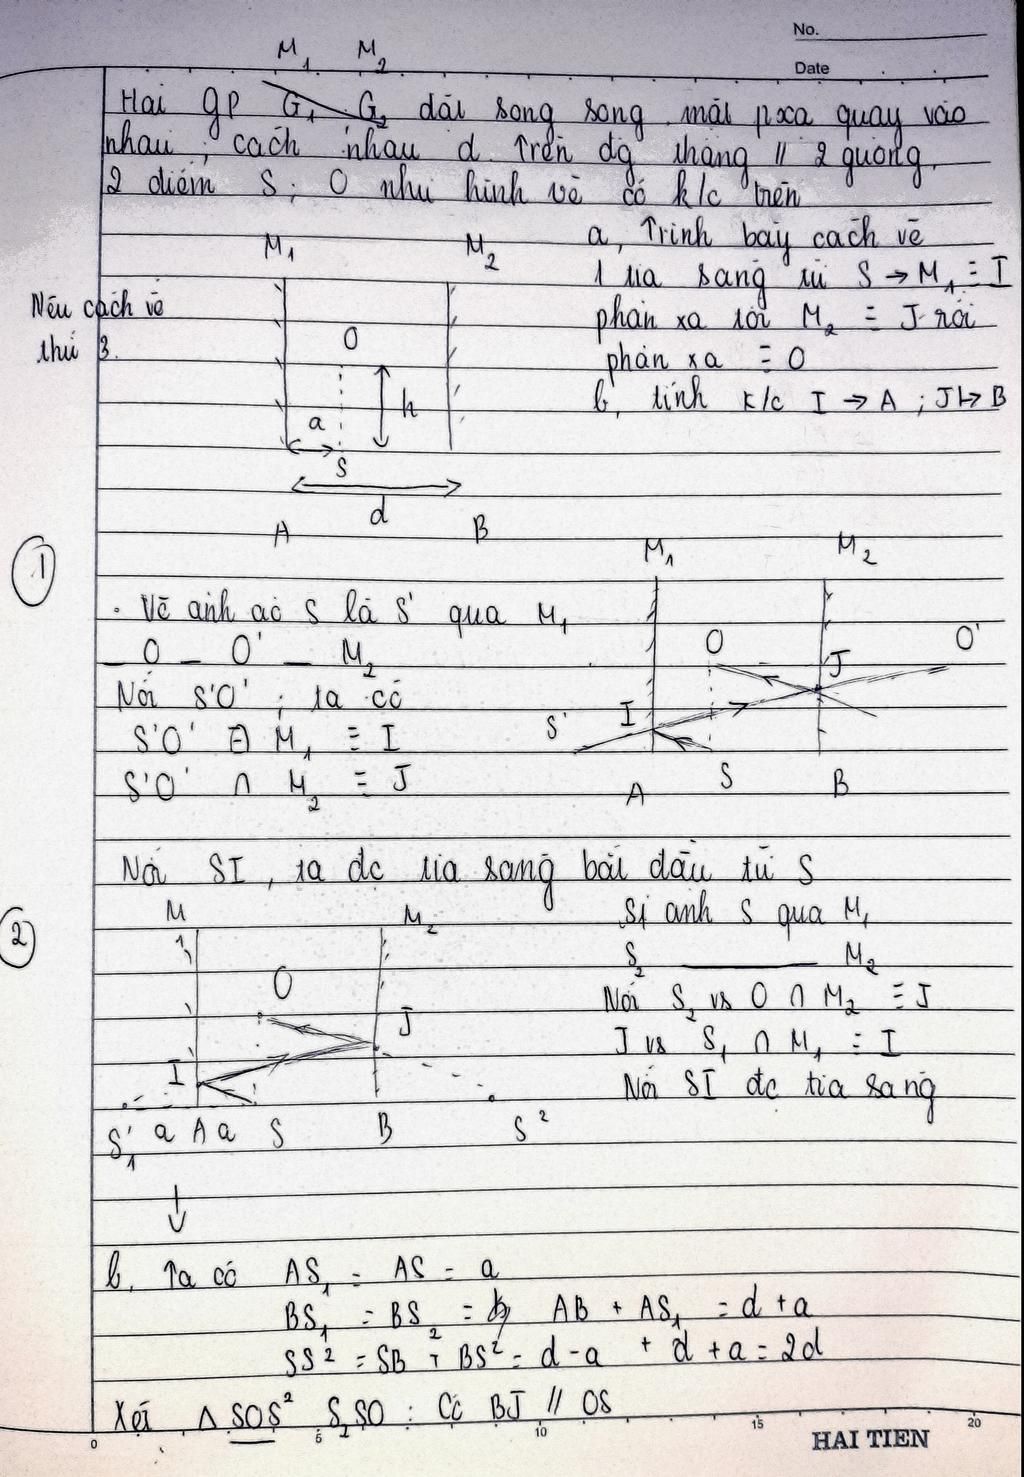 No.
Date
M₁ M₂
Hai gp G₁ G₂ đặt song song, mặt pxạ quay vào
nhau, cách nhau d. Trên đg thẳng // 2 gương,
2 điểm S; O như hình vẽ có k/c trên
M₁ M₂
Nêu cách vẽ
thứ 3.
O
h
a
S
d
A B
a, Trình bày cách vẽ
1 tia sáng từ S → M₁ ≡ I
phản xạ tới M₂ ≡ J rồi
phản xạ ≡ O
b, tính k/c I → A ; J → B
1
· Vẽ ảnh ảo S là S' qua M₁
_ O _ O' _ M₂
Nối S'O' ; ta có
S'O' ∩ M₁ ≡ I
S'O' ∩ M₂ ≡ J
M₁ M₂
O O'
J
S' I
A S B
Nối SI, ta đc tia sáng bắt đầu từ S
2
M₁ M₂
O
J
I
S'₁ a A a S B S²
S₁ ảnh S qua M₁
S₂ M₂
Nối S₂ vs O ∩ M₂ ≡ J
J vs S₁ ∩ M₁ = I
Nối SI đc tia sáng
b, Ta có AS₁ = AS = a
BS₁ = BS₂ = AB + AS₁ = d + a
SS² = SB + BS² = d - a + d + a = 2d
Xét Δ SOS² S₂SO : Có BJ // OS
0 5 10 15 20
HAI TIEN